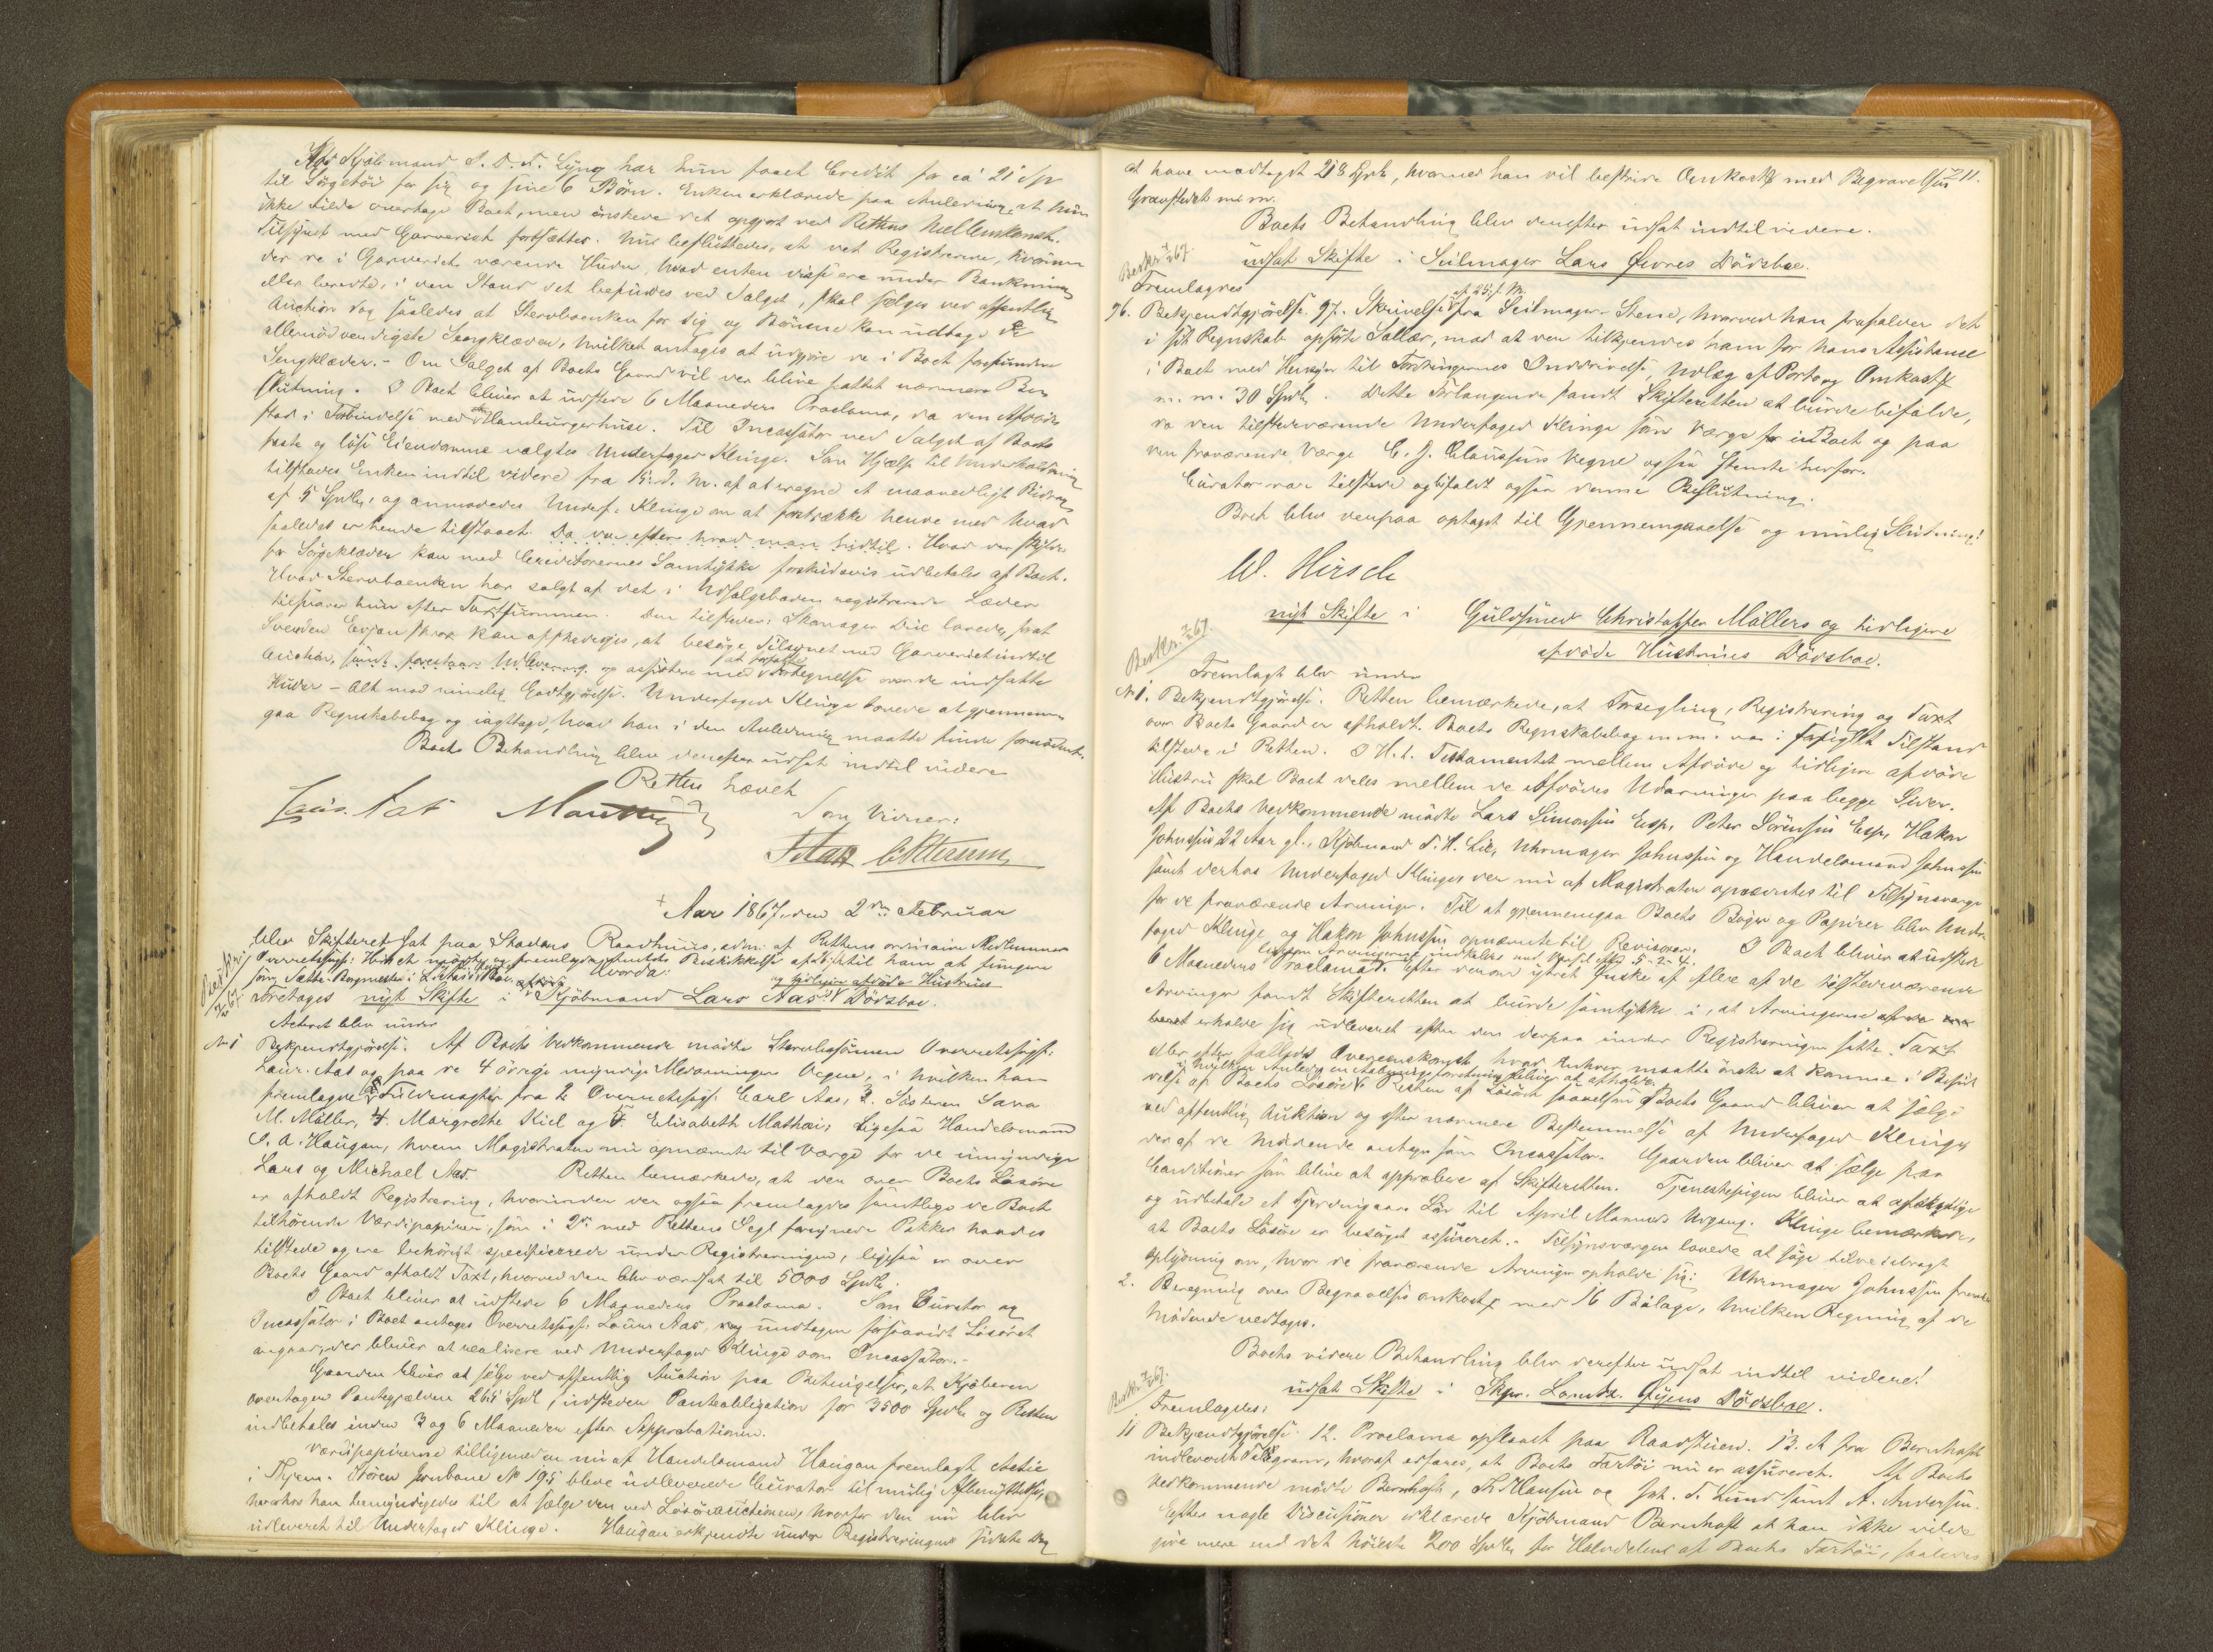 Hos Kjöbmand S. D. K. Lyng har hun faaet Credit for ca 21 Spd
til Sörgetöi for sig og sine 6 Börn. Enken erklærede paa Anledning, at hun
ikke vilde overtage Boet, men önskede det opgjort ved Rettens Mellemkomst.
Tilsynet med Garveriet fortsættes. Det besluttedes, at det Registrerede, hvorunder
de i Garveriet værende Huder, hvad enten disse ere under Barkning
eller beredte, i den Stand det befindes ved Salget, skal sælges ved offentlig
Auction dog saaledes at Stervboenken for sig og Börnene kan udtage de
allernödvendigste Sengklæder, hvilket antages at udgjöre de i Boet forefundne
Sengklæder. - Om Salget af Boets Gaard vil der blive fattet nærmere Be-
slutning. I Boet bliver at udstede 6 Maaneders Proclama, da den Afdöde
stod i Forbindelse med et Hamburgerhuse. Til Incassator ved Salget af Boets
faste og löse Eiendomme valgtes Underfoged Klinge. Som Hjælp til Underholdning
tilstodes Enken indtil videre fra 15. d. M. af at regne et maanedligt Bidrag
af 5 Spdlr, og anmodedes Underf. Klinge om at forstrække hende med hvad
saaledes er hende tilstaaet. Da der efter hvad man hidtil. Hvad der skyldes
for Sörgeklæder kan med Creditorernes Samtykke forskudsvis udbetales af Boet.
Hvad Stervboenken har solgt af det i Udsalgsboden registrerede Læder
tilsvarer hun efter Taxtsummen. Den tilstedev. Skomager Lie lovede, saat
Svenden Evjen strax kan afskediges, at besörge Tilsynet med Garveriet indtil
Auction, samt forestaar Udlevering og assistere med at forfatte Fortegnelse over de indsatte
Huder - Alt mod rimelig Godtgjörelse. Underfoged Klinge lovede at gjennem-
gaa Regnskabsbog og iagttage, hvad han i den Anledning maatte finde fornödent.
Boets Behandling blev derefter udsat indtil videre
Retten hævet
Som Vidner:
Aar 1867 den 2den Februar
blev Skifteret sat paa Stadens Raadhuus, adm. af Rettens ordinaire Medlemmer
Hvorda:
Foretoges nyt Skifte i Kjöbmand Lars Aas's og tidligere afdöde Hustrues Dödsboe.
Acteret blev under
No 1 Bekjendtgjörelse. Af Boets Vedkommende mödte Stervbosönnen Overretssagf.
Laur. Aas og paa de 4 övrige myndige Medarvingers Vegne, i hvilken han
fremlagde Fuldmagter fra 2 Overretssagf. Carl Aas, 3. Söstren Sara
M. Möller, 4. Margrethe Kiel og 5. Elisabeth Mathea; Ligesaa Handelsmand
O. A. Haugan, hvem Magistraten nu opnævnte til Værge for de umyndige
Lars og Michael Aas. Retten bemærkede, at der over Boets Lösöre
er afholdt Registrering, hvorunder der ogsaa fremlagdes samtlige de Boet
tilhörende Værdipapirer, som i 2de med Rettens Segl forsynede Pakker havdes
tilstede og ere behörigt specificerede under Registreringen, ligesaa er over
Boets Gaard afholdt Taxt, hvorved den blev værdsat til 5000 Spdlr.
I Boet bliver at udstede 6 Maaneders Proclama. Som Curator og
Incassator i Boet antoges Overretssagf. Laur. Aas, dog undtagen forsaavidt Lösöret
angaar, der bliver at realisere ved Underfoged Klinge som Incassator. -
Gaarden bliver at sælge ved offentlig Auction paa Betingelser, at Kjöberen
overtager Pantegjælden 265 Spdl, udsteder Panteobligation for 3500 Spdlr og Resten
indbetales inden 3 og 6 Maaneder efter Approbationen.
Værdipapirerne tilligemed en nu af Handelsmand Haugan fremlagt Actie
i Thjem. Stören Jernbane No 195 bleve udleverede Curator til mulig Afbenyttelse,
hvorhos han bemyndigedes til at sælge den ved Lösöreauctionen, hvorfor den nu blev
udleveret til Underfoged Klinge. Haugan erkjendte under Registreringens sidste Dag
211.
at have modtaget 218 Spdlr, hvormed han vil bestride Omkostn med Begravelsen
Gravstedet m. m.
Boets Behandling blev derefter udsat indtil videre.
udsat Skifte i Seilmager Lars Övres Dödsboe.
Fremlagdes
96. Bekjendtgjörelse. 97. Skrivelse af 25. f. M. fra Seilmager Stene, hvorved han frafalder det
i sit Regnskab opförte Sallær, mod at der tilkjendes ham for hans Assistance
i Boet med Hensyn til Fordringernes Inddrivelse, Udlæg af Porto og Omkostn
m. m. 30 Spdlr. Dette Forlangende fandt Skifteretten at burde bifalde,
da den tilstedeværende Underfoged Klinge som Værge for i Boet og paa
den fraværende Værge C. J. Claussens Vegne ogsaa stemte herfor.
Curator var tilstede og bifaldt ogsaa denne Beslutning.
Boet blev derpaa optaget til Gjennemgaaelse og mulig Slutning!
W. Hirsch
nyt Skifte i Guldsmed Christoffer Möllers og tidligere
afdöde Hustrues Dödsboe.
Fremlagt blev under
No 1. Bekjendtgjörelse. Retten bemærkede, at Forsegling, Registrering og Taxt
over Boets Gaard er afholdt. Boets Regnskabsbog m. m. var i forseglet Tilstand
tilstede i Retten. I H. t. Testamentet mellem Afdöde og tidligere afdöde
Hustru skal Boet deles mellem de Afdödes Udarvinger paa begge Sider.
Af Boets Vedkommende mödte Lars Simonsen Esp, Peter Sörensen Esp, Hakon
Johnsen 22 Aar gl., Kjöbmand T. H. Lie, Uhrmager Johnsen og Handelsmand Johnsen
samt derhos Underfoged Klinge, der nu af Magistraten opnævntes til Tilsynsværge
for de fraværende Arvinger. Til at gjennemgaa Boets Böger og Papirer blev Under-
foged Klinge og Hakon Johnsen opnævnte til Revisorer. I Boet bliver at udstede
6 Maaneders Proclama ligesom Arvingerne indkaldes med Varsel efter 5-2-4. Efter derom ytret Önske af flere af de tilstedeværende
Arvinger fandt Skifteretten at burde samtykke i, at Arvingerne
erholde sig udleveret efter den derpaa under Registreringen satte Taxt
eller efter fælleds Overenskomst hvad Enhver maatte önske at komme i Besid-
delse af Boets Lösöre i hvilken Anledn. en Auctionsforretning bliver at afholde. Resten af Lösöret saavelsom Boets Gaard bliver at sælge
ved offentlig Auktion og efter nærmere Bestemmelse af Underfoged Klinge,
der af de Mödende antoges som Incassator. Gaarden bliver at sælge paa
Conditioner som blive at approbere af Skifteretten. Tjenestepigen bliver at afskedige
og udbetale et Fjerdingaars Lön til April Maaneds Udgang. Klinge bemærkede,
at Boets Lösöre er besörget assureret. - Tilsynsværgen lovede at söge tilveiebragt
oplysning om, hvor de fraværende Arvinger opholde sig. Uhrmager Johnsen fremlagde
2. Beregning over Begravelses omkostn med 16 Bilage, hvilken Regning af de
Mödende vedtoges.
Boets videre Behandling blev derefter udsat indtil videre!
udsat Skifte i Skpr. Lorntz. Öyens Dödsboe.
Fremlagdes:
11 Bekjendtgjörelse. 12. Proclama opslaaet paa Raadstuen. 13. Et fra Bernhoft
indleveret Telegram, hvoraf erfares, at Boets Fartöi nu er assureret. Af Boets
Vedkommende mödte Bernhoft, Fr Hansen og Joh. T. Lund samt A. Andersen.
Efter nogle Discusioner erklærede Kjöbmand Bernhoft at han ikke vilde
give mere end det höieste 200 Spdlr for Halvdelen af Boets Fartöi, saaledes